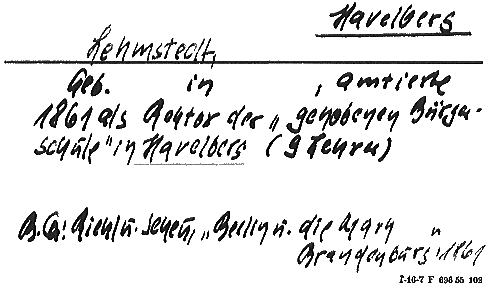 Havelberg
Lehmstedt,
Geb. in , amtierte
1861 als Rektor der „gehobenen Bürger-
schule" in Havelberg (9 Lehrer)
B.Q: Riehl u. Scheu, „Berlin u. die Mark
Brandenburg", 1861
I-16-7 F 698 55 102